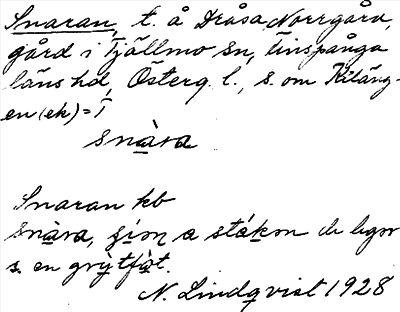 Snaran, t. å Dråsa Norrgård,
gård i Tjällmo sn, Finspånga
läns hd, Österg. l., s. om Kiläng-
en (ek) = I
snàra
Snaran kb
snàra, a de ligor
s. en grỳtfòt.
N. Lindqvist 1928